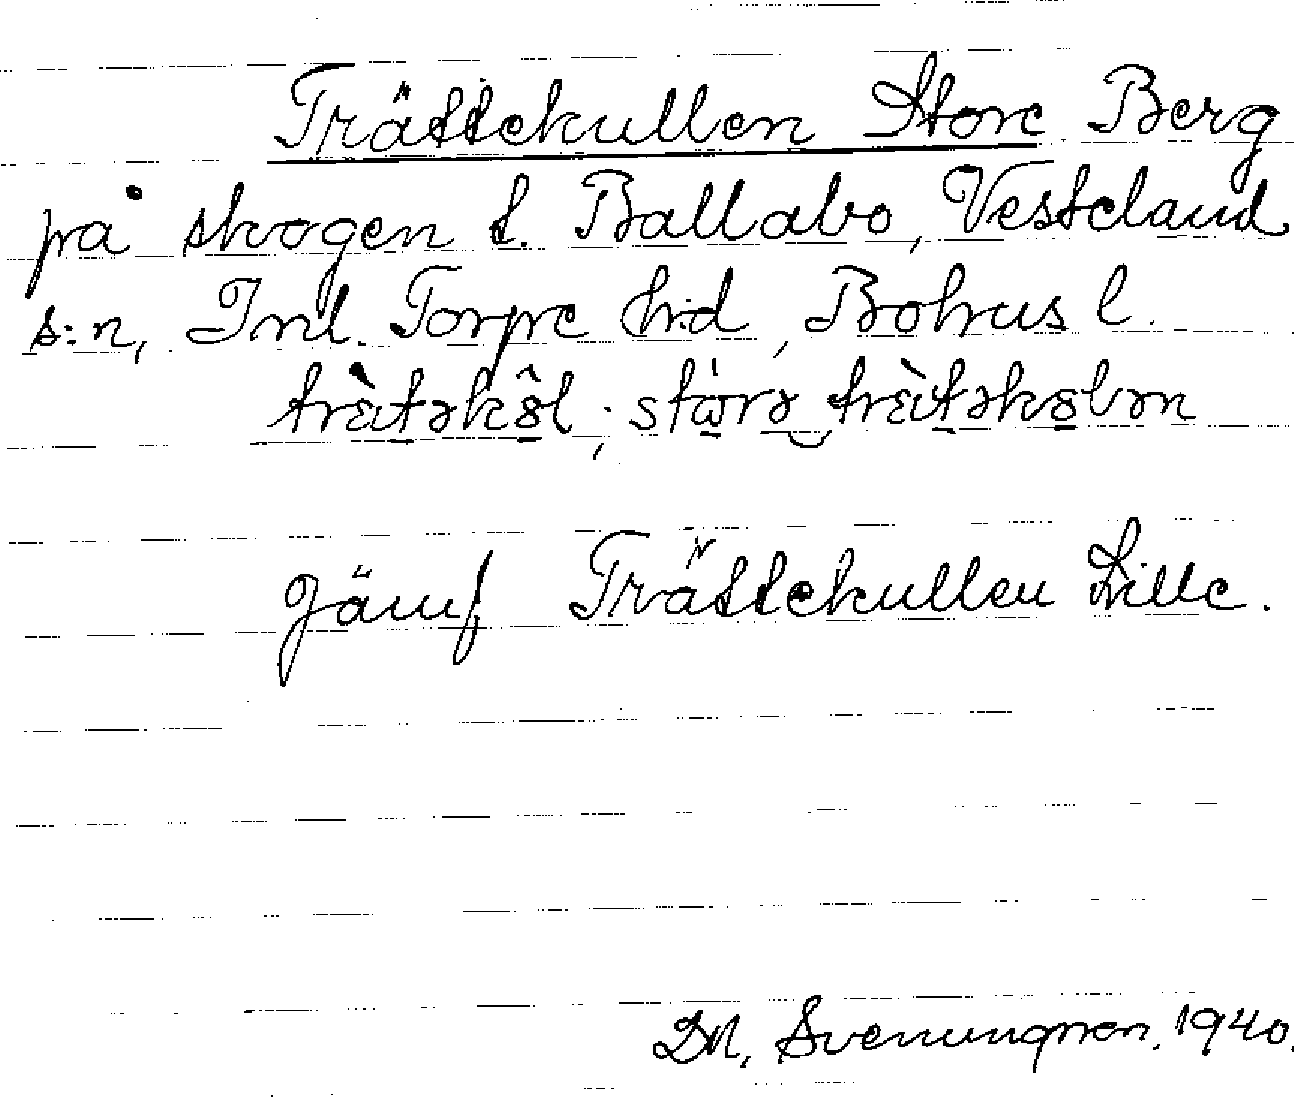 Trättekullen Store Berg
på skogen t. Ballabo, Västerland
s:n, Inl. Torpe hd, Bohus l.
trɛ̀tək8̂l; stɷ̀rə trɛ̀tək8lən
Jämf Trättekullen Lille.
DM, Svenungsson. 1940.